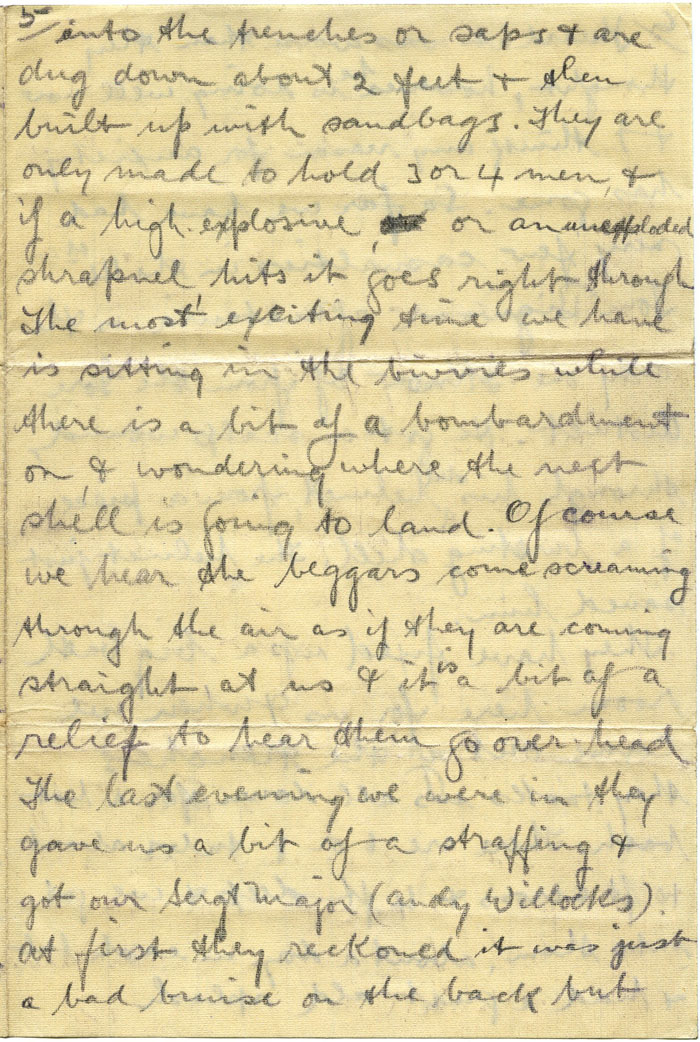 5/
into the trenches or saps & are
dug down about 2 feet & then
built up with sandbags. They are
only made to hold 3 or 4 men, &
if a high explosive, or an unexploded
shrapnel hits it goes right through
The most exciting time we have
is sitting in the bivvies while
there is a bit of a bombardment
on, & wondering where the next
shell is going to land. Of course
we hear the beggars come screaming
through the air as if they are coming
straight at us & it is a bit of a
relief to hear them go over head
The last evening we were in they
gave us a bit of a straffing &
got our Sergt Major (Andy Willocks).
at first they reckoned it was just
a bad bruise on the back but